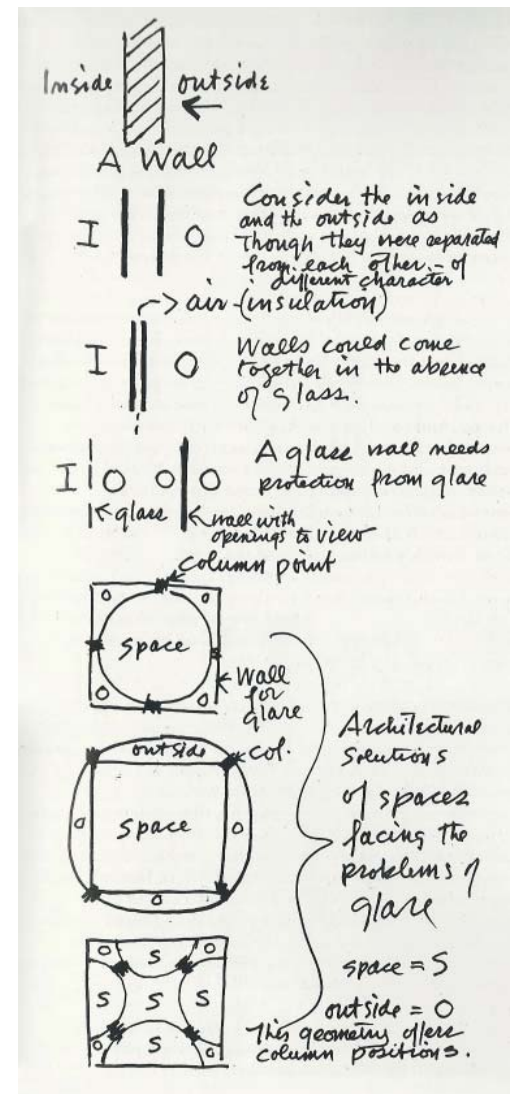 Inside outside
A Wall
I O
Consider the inside
and the outside as
though they were separated
from each other - of
different character
air (insulation)
I O
Walls could come
together in the absence
of glass.
I O O O
A glass wall needs
protection from glare
glass
wall with
openings to view
column point
O O
space
O O
Wall
for
glare
outside
col.
O space O
O
Architectural
Solutions
of spaces
facing the
problems of
glare
O S O
S S S
O S O
space = S
outside = O
This geometry offers
column positions.